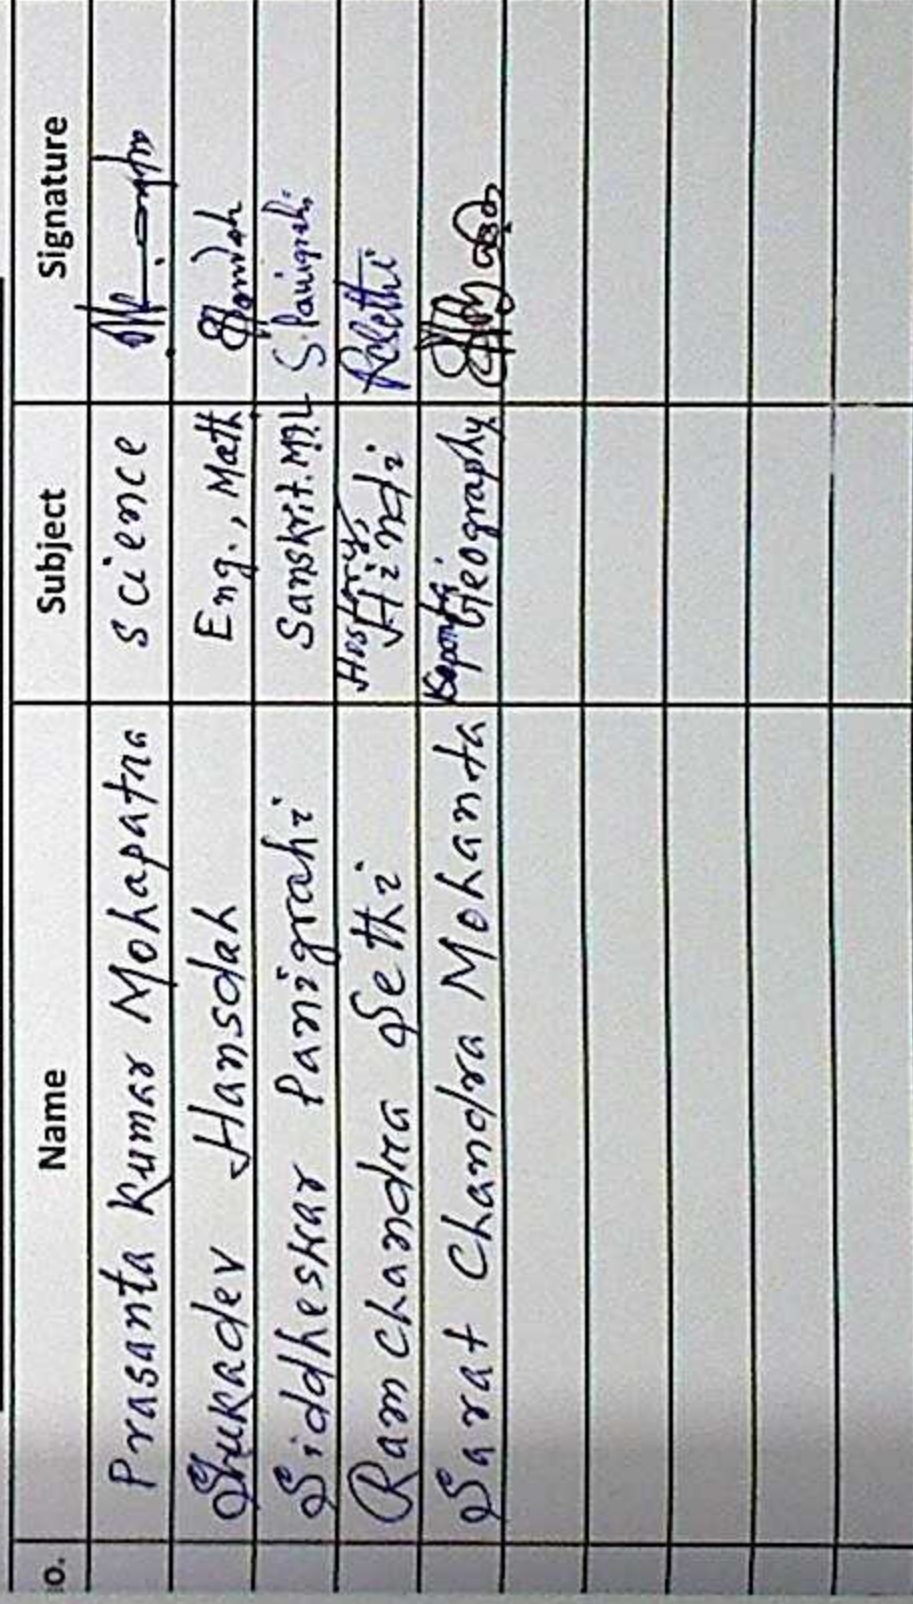 Name Subject Signature
Prasanta Kumar Mohapatra Science
Shukadev Hansdah Eng., Math
Siddheswar Panigrahi Sanskrit. MIL S. Panigrahi
History,
Ram Chandra Sethi Hindi RCSethi
Sarat Chandra Mohanta Geography